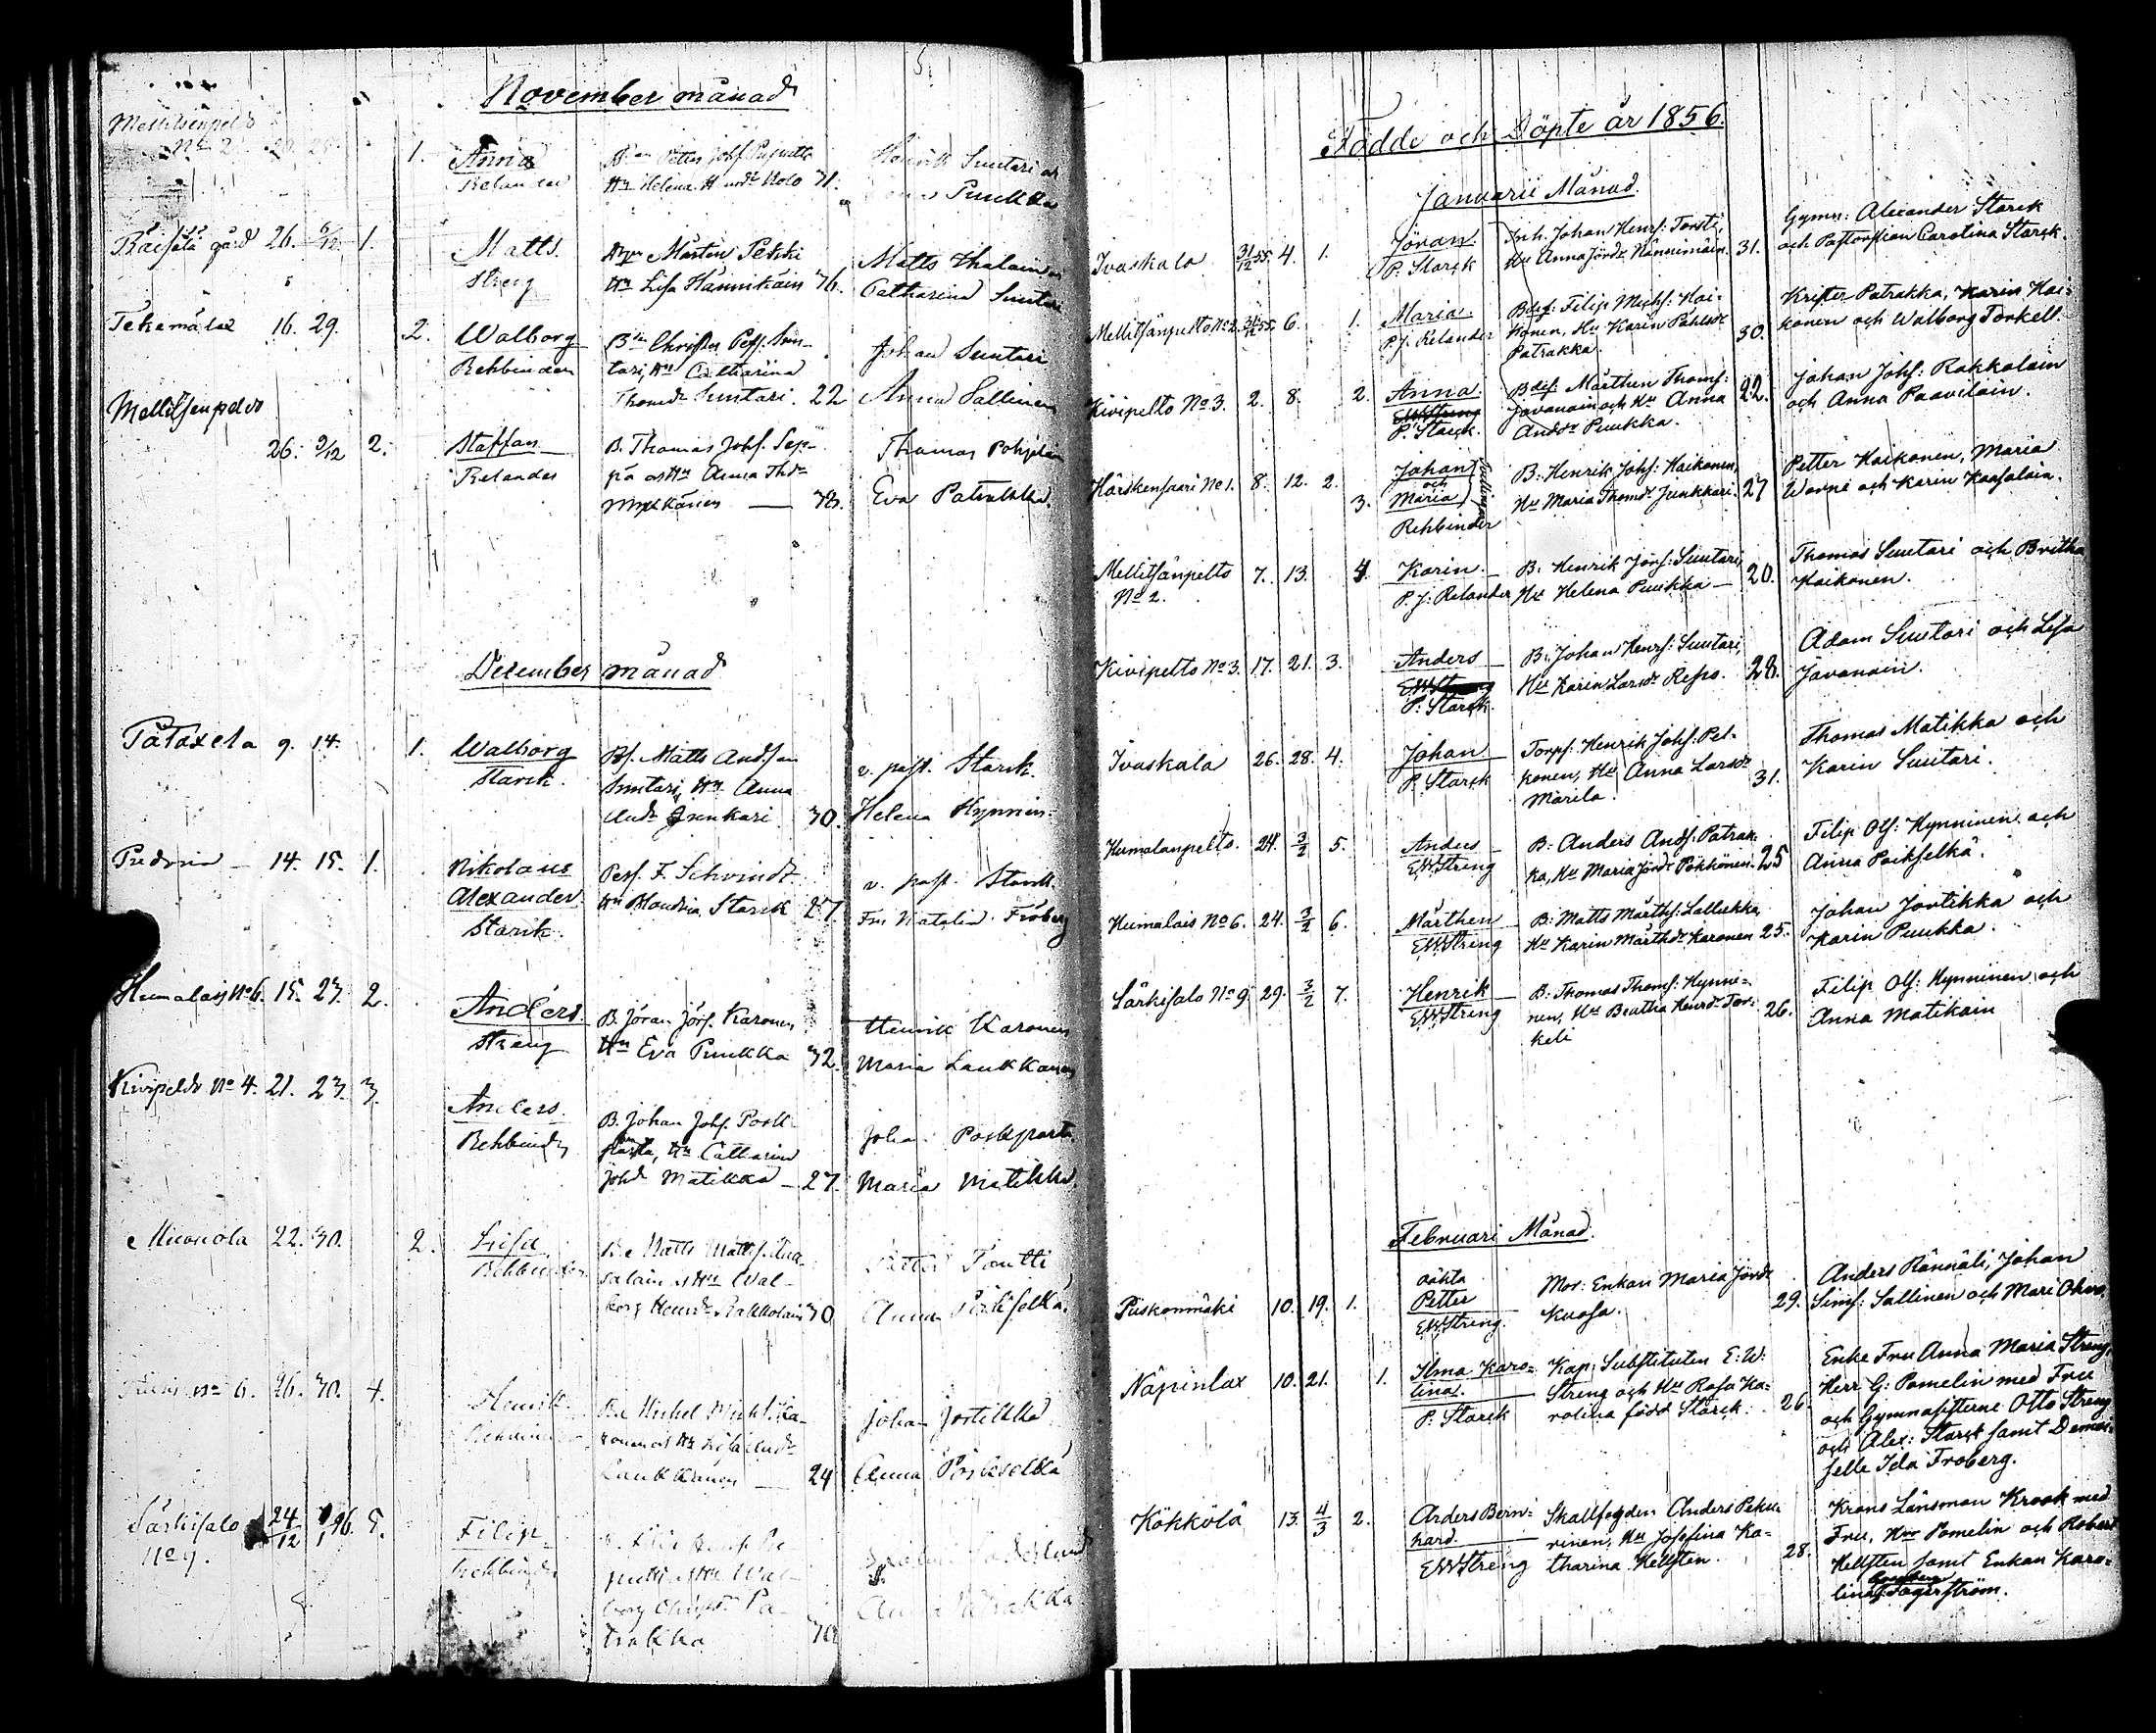 November månad
Mellitsenpeldo
No 2. 20. 25. 1. Anna
Relander
Hn Helena 31.
Henrik Suutari
Puukka
Räisälä gård 26. 6/12. 1. Matts.
Streng
Mårten Petski
Hu Lisa Hännikäin 36.
Matts Ihalain
Catharina Suutari
Tekemälä 16. 29. 2. Walborg
Rehbinder
Bdn Christer Pess. Suu-
tari, Hu Catharina
Thomdr Suutari. 22
Johan Suutari
Anna Sallinen
Mellitsenpeldo
26. 9/12 2. Staffan
Relander
B. Thomas Johs. Sep-
pä os Hu Anna Thdr
Mykkänen — 33.
Thomas Pohjolain
Eva Patrakka.
December månad
Påtåxela 9. 14. 1. Walborg
Starck.
Bs. Matts Andsson
Suutari, Hu Anna
Andr Junkari 30.
v. past. Starck.
Helena Hynnin:
14. 15. 1. Nikolaus
Alexander
Starck.
Pers. F. Schvindt
Starck 27.
v. past. Starck.
Fru Natalia Fröberg
Humalais No 6. 15. 23. 2. Anders.
Streng
B. Jöran Jörs. Karonen
Hu Eva Puukka 32.
Henrik Karonen
Maria Laukkanen
Kivipeldo No 4. 21. 23. 3. Anders.
Rehbinder
B. Johan Johs. Posk-
parta, Hu Catharina
Johdr Matikka — 27.
Johan Poskparta
Maria Matikka.
22. 30. 2. Lisa
Rehbinder
Be Matts Mattss.
salain os Hu Wal-
borg Henrdr Rakkolain 30
Petter Toutti
Anna Päikselkä.
No 6. 26. 30. 4. Henrik
Rehbinder
Be Michel Michs. Ka-
ronen os Hu Lisa Andr
Laukkanen — 24
Johan Jortikka
Anna Poikselkä
Särkisalo
No 9. 24/12 1/1 56. 5. Filip
Rehbinder
borg Christr Pa-
trakka 30
Anna Patrakka
Födde och Döpte år 1856.
Januarii Månad.
Ivaskala 31/12 55. 4. 1. Jöran
P. Starck
Inh. Johan Henrs: Torsti,
Hu Anna Jördr Hännimäin. 31.
Gymn: Alexander Starck
och Pastorskan Carolina Starck.
Mellitsänpelto No 2. 31/12 55. 6. 1. Maria.
P. J. Relander
Bdes: Filip Michs: Hai-
konen, Hu Karin Pahlsdr
Patrakka. 30.
Krister Patrakka, Karin Hai-
konen och Walborg Torkell.
Kivipelto No 3. 2. 8. 2. Anna.
E.W. Streng
P. Starck.
Bdes: Mårthen Thoms:
Javanain och Hu Anna
Andsdr Puukka. 22.
Johan Johs: Rakkolain
och Anna Paavilain.
Härskensaari No 1. 8. 12. 2. Johan
och
3. Maria
Rehbinder
B: Henrik Johs: Haikonen,
Hu Maria Thomdr Junkkari. 27
Petter Haikonen, Maria
Worne och Karin Kaasalain.
Mellitsänpelto 7. 13. 4. Karin.
No 2. P. J. Relander
B: Henrik Jörs: Suutari,
Hu Helena Puukka — 20.
Thomas Suutari och Britha
Haikonen.
Kivipelto No 3. 17. 21. 3. Anders
E.W. Streng
P. Starck.
B: Johan Henrs: Suutari,
Hu Karin Larsdr Repo. 28.
Adam Suutari och Lisa
Javanain.
Ivaskala 26. 28. 4. Johan
P. Starck
Torps: Henrik Johs: Pel-
konen, Hu Anna Larsdr
Marila. 31.
Thomas Matikka och
Karin Suutari.
Humalanpelto. 24. 3/2 5. Anders
E.W. Streng
B: Anders Ands: Patrak-
ka, Hu Maria Jördr Pökkönen. 25
Filip Ols: Hynninen och
Anna Paikselkä.
Humalais No 6. 24. 3/2 6. Mårthen
E.W. Streng
B: Matts Mårths: Lallukka,
Hu Karin Mårthdr Karonen 25.
Johan Jortikka och
Karin Puukka.
Särkisalo No 9. 29. 3/2 7. Henrik
E.W. Streng
B: Thomas Thoms: Hynni-
nen, Hu Beatha Henrdr Tor-
keli 26.
Filip Ols: Hynninen och
Anna Matikain
Februari Månad.
Puskonmäki 10. 19. 1. oäkta
Petter
E.W. Streng.
Mor: Enkan Maria Jördr
Kuosa. 29.
Anders Rännäli, Johan
Sims: Sallinen och Mari Ohvo.
Näpinlax 10. 21. 1. Ilma Karo-
lina.
P. Starck
Kap: Substituten E: W:
Streng och Hu Rosa Ka-
rolina född Starck. 26.
Enke Fru Anna Maria Streng,
Herr G: Pomelin med Fru
och Gymnasisterne Otto Streng
och Alex: Starck samt Demoi-
selle Ida Froberg.
Kökkölä 13. 4/3 2. Anders Bern-
hard.
E.W. Streng
Skallfogden Anders Peku-
rinen, Hu Josefina Ka-
tharina Hellsten. 28.
Krono Länsman Krook med
Fru, Herr Pomelin och Robert
Hellsten samt Enkan Karo-
lina Fagerström.